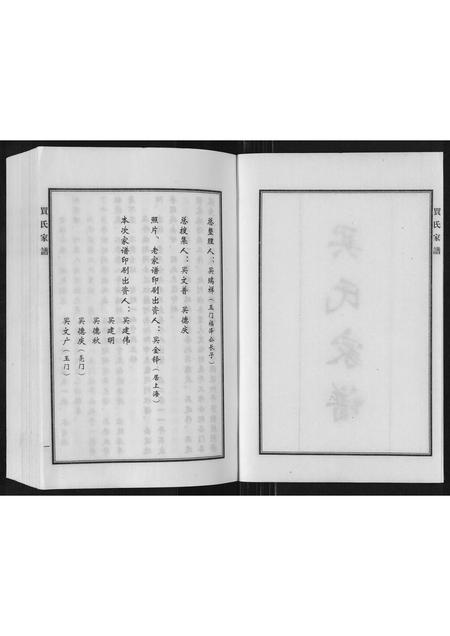 買氏家譜
买氏家谱
总整理人：买瑞祥（五门福泽公长子）
总搜集人：买文普 买德庆
照片、老家谱印刷出资人：买金铎（居上海）
本次家谱印刷出资人：买建伟
买建明
买德秋
买德庆（长门）
买文广（五门）
買氏家譜
一